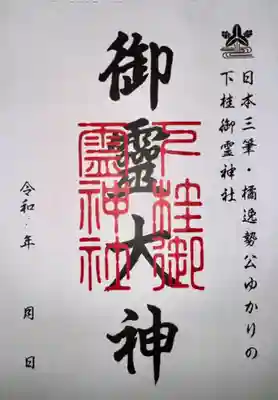 日本三筆・橘逸勢公ゆかりの
下桂御霊神社
御靈大神
下桂御
靈神社
令和 年 月 日